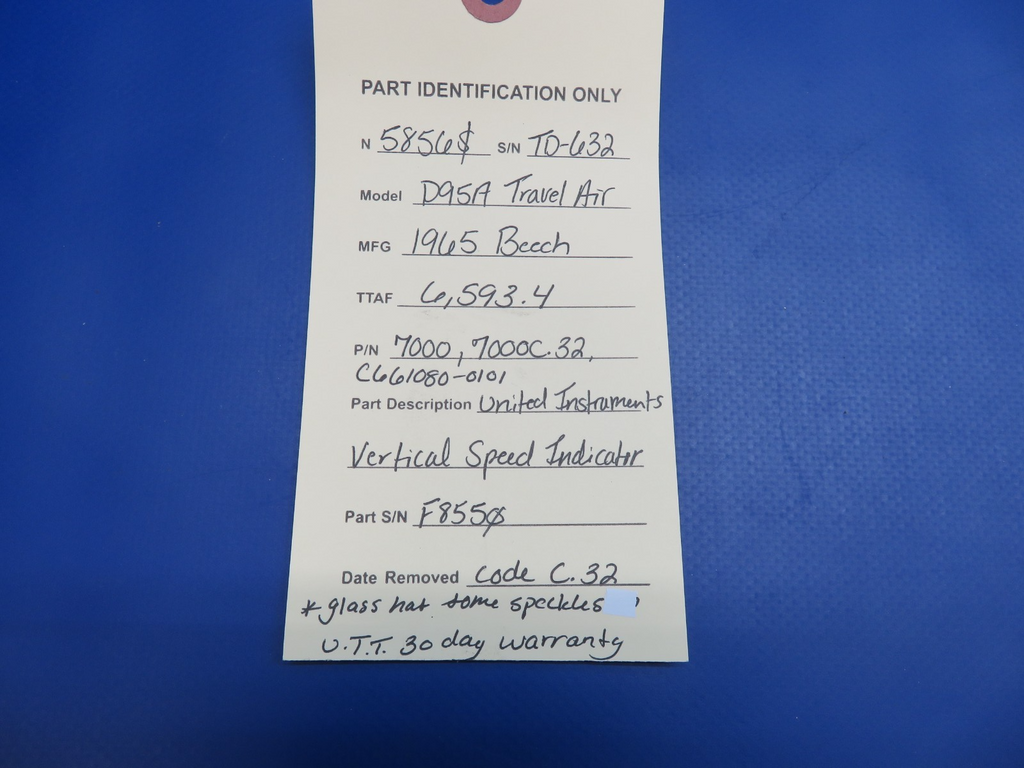 PART IDENTIFICATION ONLY
N 5856$ S/N TD-632
Model D95A Travel Air
MFG 1965 Beech
TTAF 6,593.4
P/N 7000, 7000C.32,
C661080-0101
Part Description United Instruments
Vertical Speed Indicator
Part S/N F855ø
Date Removed Code C.32
* glass has some speckles
U.T.T. 30 day warranty